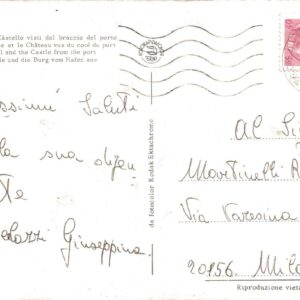 Castello visti dal braccio del porto
e et le Château vus du cool du port
l and the Castle from the port
le und die Burg vom Hafen aus
Saluti
la sua
Giuseppina
da fotocolor Kodak Ektachrome
Al Sig
Martinelli A
Via Varesina
20156. Mila
Riproduzione vieta